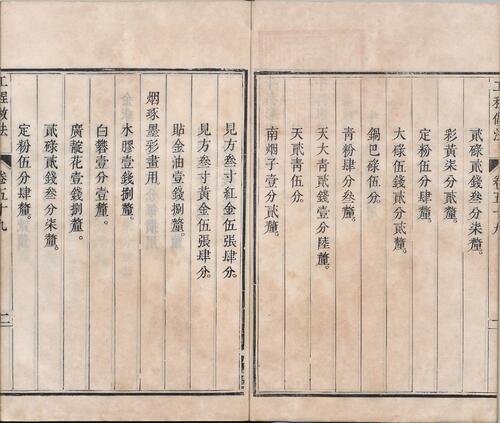 貳碌貳錢叁分柒釐。
彩黃柒分貳釐。
定粉伍分肆釐。
大碌伍錢貳分貳釐。
鍋巴碌伍分。
青粉肆分叁釐。
天大青貳錢壹分陸釐。
天貳青伍分。
南烟子壹分貳釐。
見方叁寸紅金伍張肆分。
見方叁寸黃金伍張肆分。
貼金油壹錢捌釐。
烟琢墨彩畫用
水膠壹錢捌釐。
白礬壹分壹釐。
廣靛花壹錢捌釐。
貳碌貳錢叁分柒釐。
定粉伍分肆釐。
工程做法 卷五十九 二